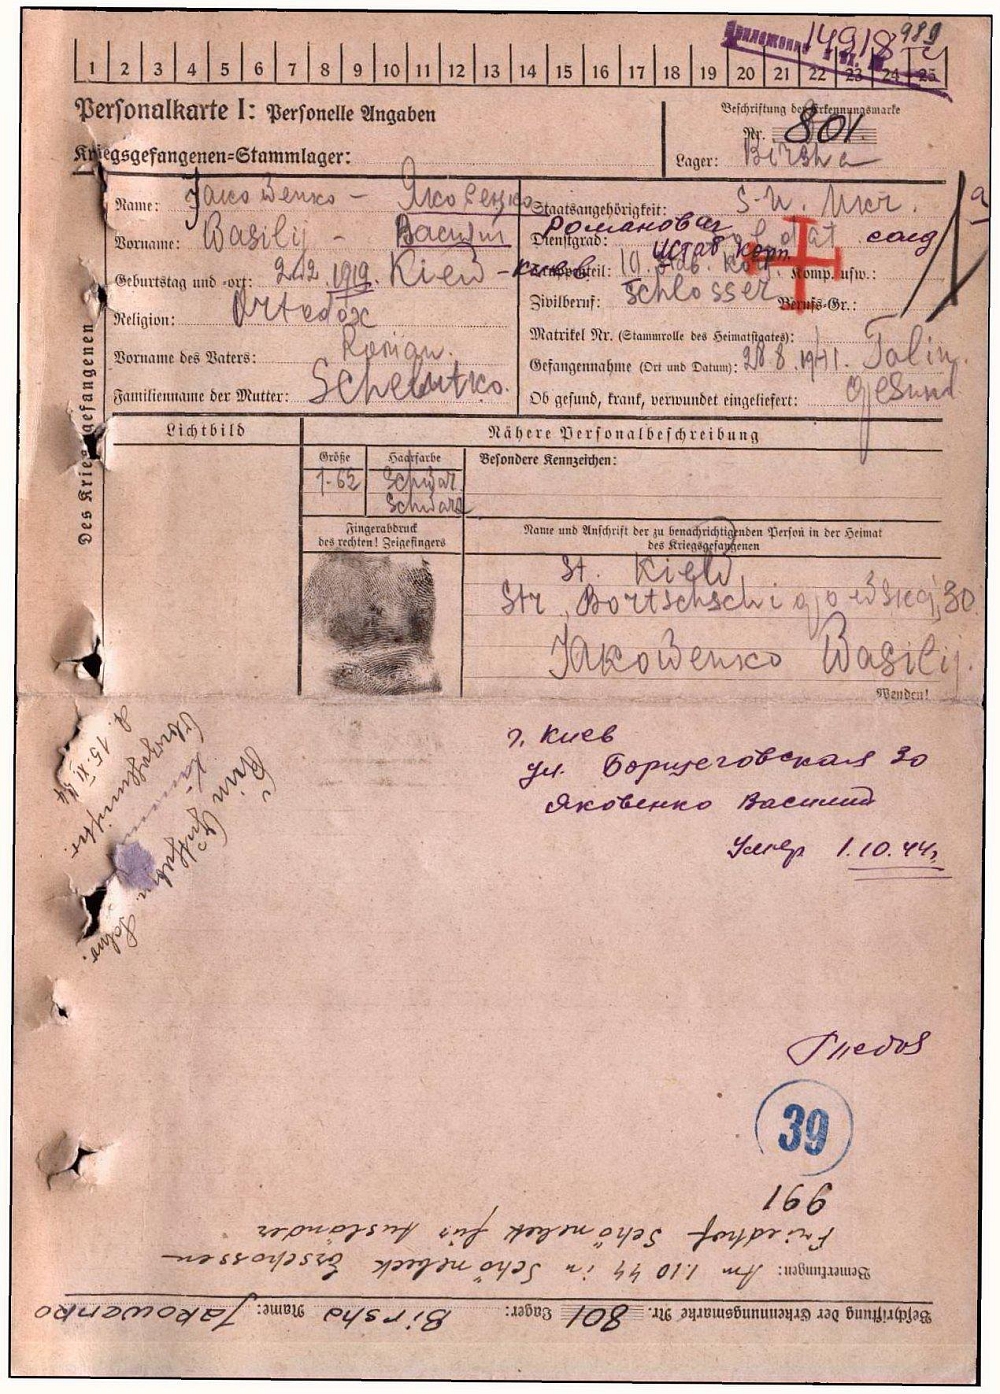 989
14918
Приложение
1 2 3 4 5 6 7 8 9 10 11 12 13 14 15 16 17 18 19 20 21 22 23 24 25
Personalkarte I: Personelle Angaben
Beschriftung der Erkennungsmarke
Nr. 801.
Kriegsgefangenen-Stammlager:
Lager: Birsha
Des Kriegsgefangenen
Name: Jakowenko - Яковенко
Staatsangehörigkeit: S.U. Ukr.
Романович
Vorname: Wasilij - Василий
Dienstgrad: Soldat солд
Штаб Корп.
Geburtstag und -ort: 2.12.1919. Kiew - Киев
Truppenteil: 10 Stab. Korp. Komp. usw.:
Zivilberuf: Schlosser Berufs-Gr.:
Religion: Ortodox
Matrikel Nr. (Stammrolle des Heimatstaates):
Vorname des Vaters: Roman.
Gefangennahme (Ort und Datum): 28.8.1941. Talin.
Familienname der Mutter:
Ob gesund, krank, verwundet eingeliefert: Gesund
Lichtbild
Nähere Personalbeschreibung
Größe Haarfarbe Besondere Kennzeichen:
1-62 Schwar
Schwarz
Fingerabdruck
des rechten! Zeigefingers
Name und Anschrift der zu benachrichtigenden Person in der Heimat
des Kriegsgefangenen
St. Kiew
Str. 30.
Jakowenko Wasilij.
Wenden!
г. Киев
ул. Борщеговская 30
Яковенко Василий
Умер 1.10.44г.
Kein
15.XI.44
39
991
Friedhof Schönebek für Ausländer
Bemerkungen: Am 1.10 44 in Schönebeck Erschossen
Beschriftung der Erkennungsmarke Nr. 801 Lager: Birsha Name: Jakowenko